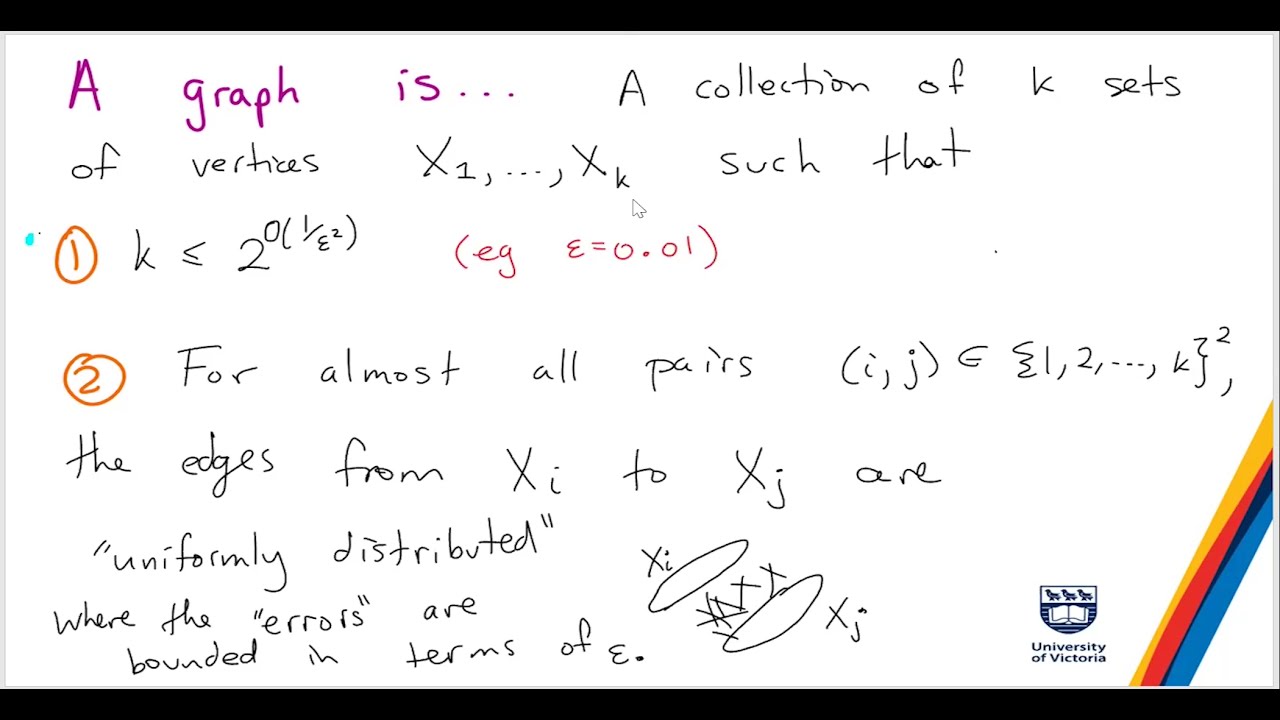 A graph is... A collection of k sets
of vertices X₁, ..., Xₖ such that
① k ≤ 2^{O(1/ε²)} (eg ε=0.01)
② For almost all pairs (i,j) ∈ {1,2,...,k}²,
the edges from Xᵢ to Xⱼ are
"uniformly distributed"
where the "errors" are
bounded in terms of ε.
Xᵢ
Xⱼ
University
of Victoria